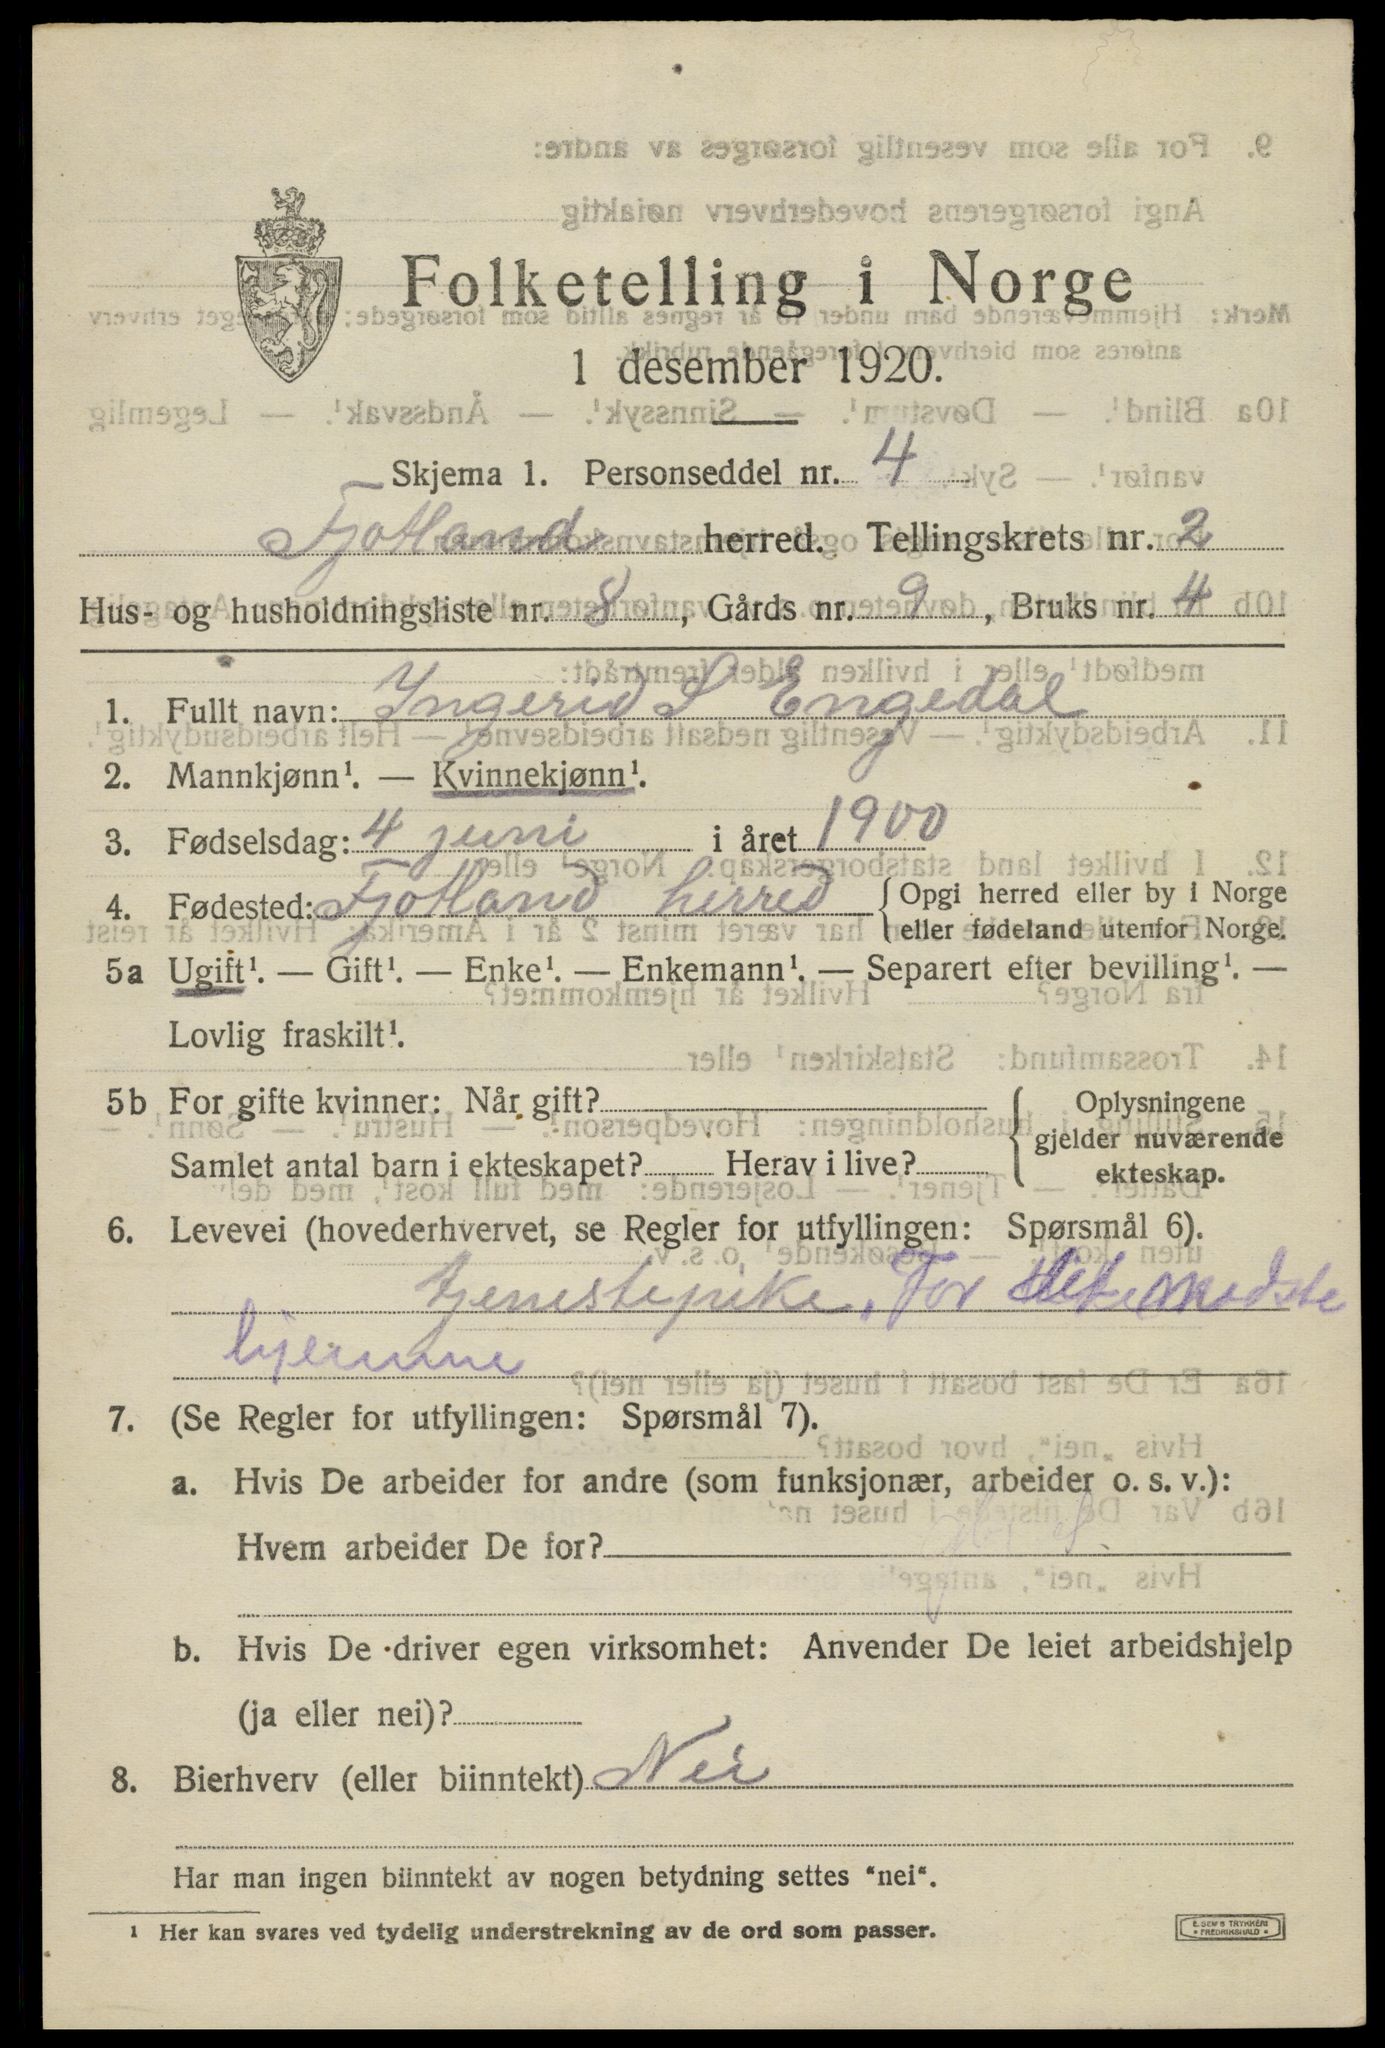 Folketelling i Norge
1 desember 1920.
Skjema 1. Personseddel nr. 4
Fjotland herred. Tellingskrets nr. 2
Hus- og husholdningsliste nr. 8, Gårds nr. 9, Bruks nr. 4
1. Fullt navn: Ingerid S Engedal
2. Mannkjønn¹. — Kvinnekjønn¹.
3. Fødselsdag: 4 juni i året 1900
4. Fødested: Fjotland herred { Opgi herred eller by i Norge
eller fødeland utenfor Norge.
5a Ugift¹. — Gift¹. — Enke¹. — Enkemann¹. — Separert efter bevilling¹. —
Lovlig fraskilt¹.
5b For gifte kvinner: Når gift? { Oplysningene
gjelder nuværende
Samlet antal barn i ekteskapet? Herav i live?
ekteskap.
6. Levevei (hovederhvervet, se Regler for utfyllingen: Spørsmål 6).
tjenestepike, For det meste
hjemme
7. (Se Regler for utfyllingen: Spørsmål 7).
a. Hvis De arbeider for andre (som funksjonær, arbeider o. s. v.):
Hvem arbeider De for?
b. Hvis De driver egen virksomhet: Anvender De leiet arbeidshjelp
(ja eller nei)?
8. Bierhverv (eller biinntekt) Nei
Har man ingen biinntekt av nogen betydning settes "nei".
¹ Her kan svares ved tydelig understrekning av de ord som passer.
E. SEM'S TRYKKERI
• FREDRIKSHALD •